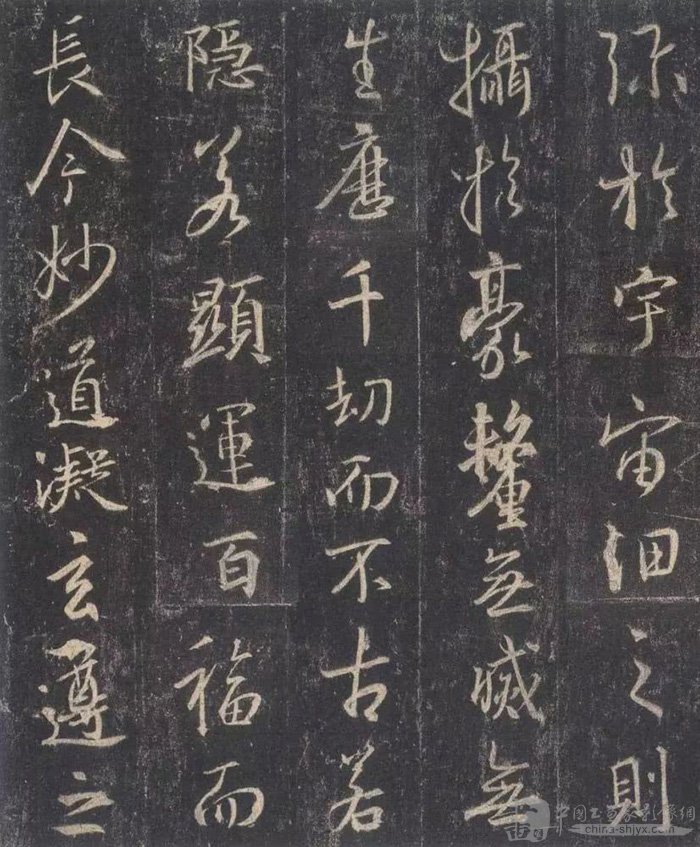 弥於宇宙細之則
攝於豪釐無滅無
生歷千劫而不古若
隱若顯運百福而
長今妙道凝玄遵之
china-shjyx.com